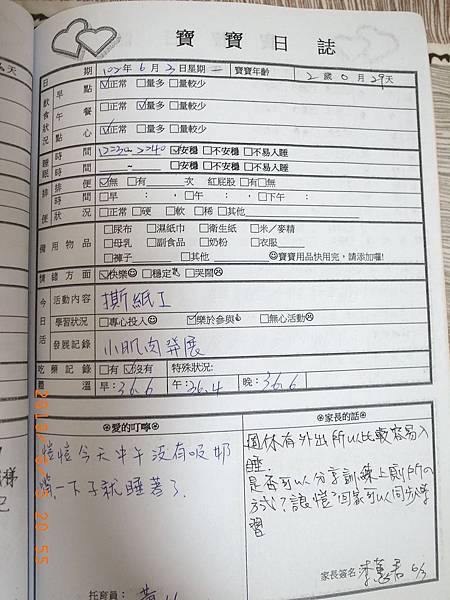 寶寶日誌
日期 102年6月3日星期一 寶寶年齡 2歲0月29天
飲食狀況 早點 ☑正常 □量多 □量較少
午餐 □正常 ☑量多 □量較少
點心 ☑正常 □量多 □量較少
睡眠 時間 12=30~2=40 ☑安穩 □不安穩 □不易入睡
時間 ~ □安穩 □不安穩 □不易入睡
排便 排便 ☑無 □有 次 紅屁股 □有□無
時間 □早: ,□午: ,□下午:
狀況 □正常 □硬 □軟 □稀 □其他
備用物品 □尿布 □濕紙巾 □衛生紙 □米/麥精
□母乳 □副食品 □奶粉 □衣服
□褲子 □其他 ☺寶寶用品快用完,請添加囉!
情緒方面 ☑快樂☺ □穩定 □哭鬧☹
今日活 活動內容 撕紙工
學習狀況 □專心投入☺ ☑樂於參與 □無心活動☹
發展記錄 小肌肉發展
吃藥記錄 □有 ☑沒有 特殊狀況:
體溫 早:36.6 午:36.4 晚:36.6
⊛愛的叮嚀⊛
愷愷今天中午沒有吸奶
嘴一下子就睡著了.
⊛家長的話⊛
週休有外出所以比較容易入
睡.
是否可以分享訓練上廁所の
方式?讓愷愷回家可以同步學
習
家長簽名 6/3
托育員: 黃
2013/6/3 20:55